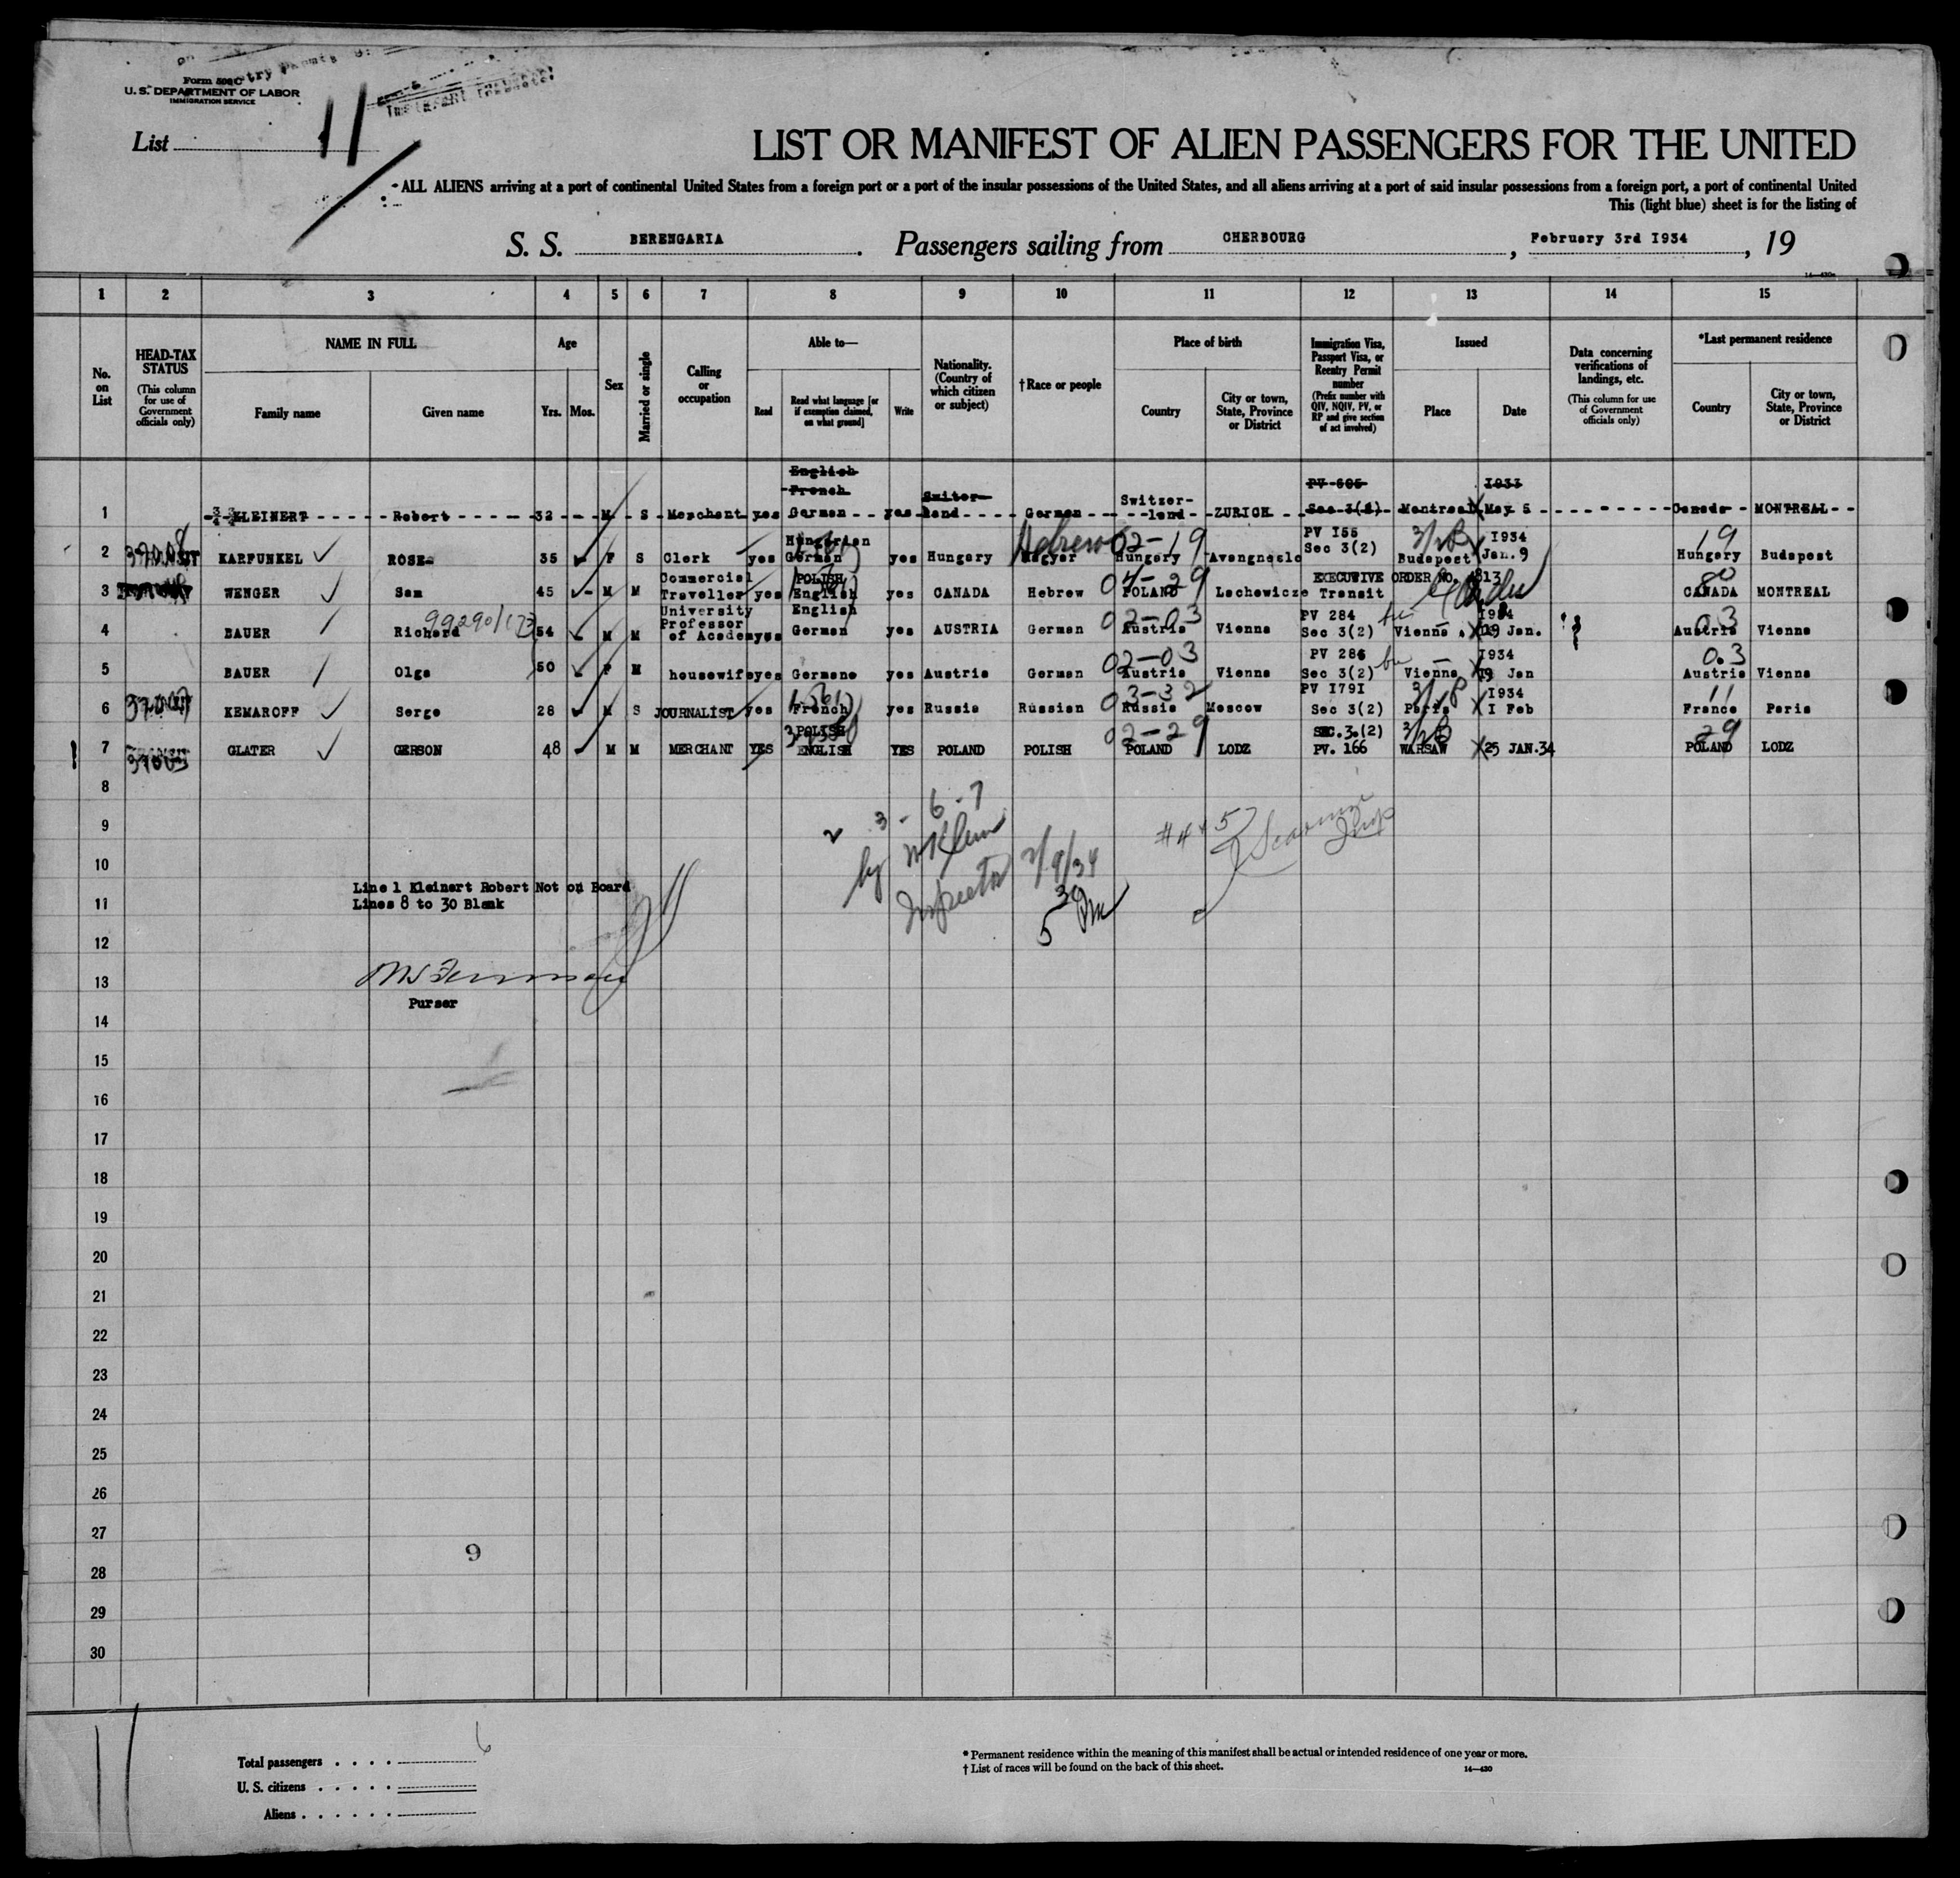 Form 500 C
U. S. DEPARTMENT OF LABOR
IMMIGRATION SERVICE
List 11
LIST OR MANIFEST OF ALIEN PASSENGERS FOR THE UNITED
ALL ALIENS arriving at a port of continental United States from a foreign port or a port of the insular possessions of the United States, and all aliens arriving at a port of said insular possessions from a foreign port, a port of continental United
This (light blue) sheet is for the listing of
S. S. BERENGARIA. Passengers sailing from CHERBOURG, February 3rd I934, 19
1 2 3 4 5 6 7 8 9 10 11 12 13 14 15
No. on List
HEAD-TAX STATUS (This column for use of Government officials only)
NAME IN FULL Family name Given name
Age Yrs. Mos.
Sex
Married or single
Calling or occupation
Able to— Read Read what language [or if exemption claimed, on what ground] Write
Nationality. (Country of which citizen or subject)
†Race or people
Place of birth Country City or town, State, Province or District
Immigration Visa, Passport Visa, or Reentry Permit number (Prefix number with QIV, NQIV, PV, or RP and give section of act involved)
Issued Place Date
Data concerning verifications of landings, etc. (This column for use of Government officials only)
*Last permanent residence Country City or town, State, Province or District
1 KLEINERT Robert 32 M S Merchant yes English French German yes Switer-land German Switzer-land ZURICH PV 605 Sec 3(2) Montreal May 5 I933 Canada MONTREAL
2 KARFUNKEL ROSE 35 F S Clerk yes Hungarian German yes Hungary Magyar Hebrew 02-19 Hungery PV I55 Sec 3(2) Budapest Jan. 9 I934 19 Hungery Budapest
3 WENGER Sam 45 M M Commercial Traveller yes POLISH English yes CANADA Hebrew 04-29 POLAND Lachowicze EXECUTIVE ORDER NO. 4813 Transit 80 CANADA MONTREAL
4 BAUER Richard 99290/173 54 M M University Professor of Academy yes English German yes AUSTRIA German 02-03 Austria Vienna PV 284 Sec 3(2) Vienna I9 Jan. I934 03 Austria Vienna
5 BAUER Olga 50 F M housewife yes Germane yes Austria German 02-03 Austria Vienna PV 286 Sec 3(2) Vienna I9 Jan I934 03 Austria Vienna
6 KEMAROFF Serge 28 M S JOURNALIST yes French yes Russia Russian 03-32 Russia Moscow PV I79I Sec 3(2) Paris I Feb I934 11 France Paris
7 GLATER GERSON 48 M M MERCHANT YES POLISH ENGLISH YES POLAND POLISH 02-29 POLAND LODZ SEC. 3.(2) PV. 166 WARSAW 25 JAN.34 29 POLAND LODZ
8
9
10
11
12
13
14
15
16
17
18
19
20
21
22
23
24
25
26
27
28
29
30
2 3 - 6 - 7
by
Inspector 2/9/34
5 30 PM
#4 + 5
Insp
Line 1 Kleinert Robert Not on Board
Lines 8 to 30 Blank
Purser
9
Total passengers 6
U. S. citizens
Aliens
* Permanent residence within the meaning of this manifest shall be actual or intended residence of one year or more.
† List of races will be found on the back of this sheet.
14—430